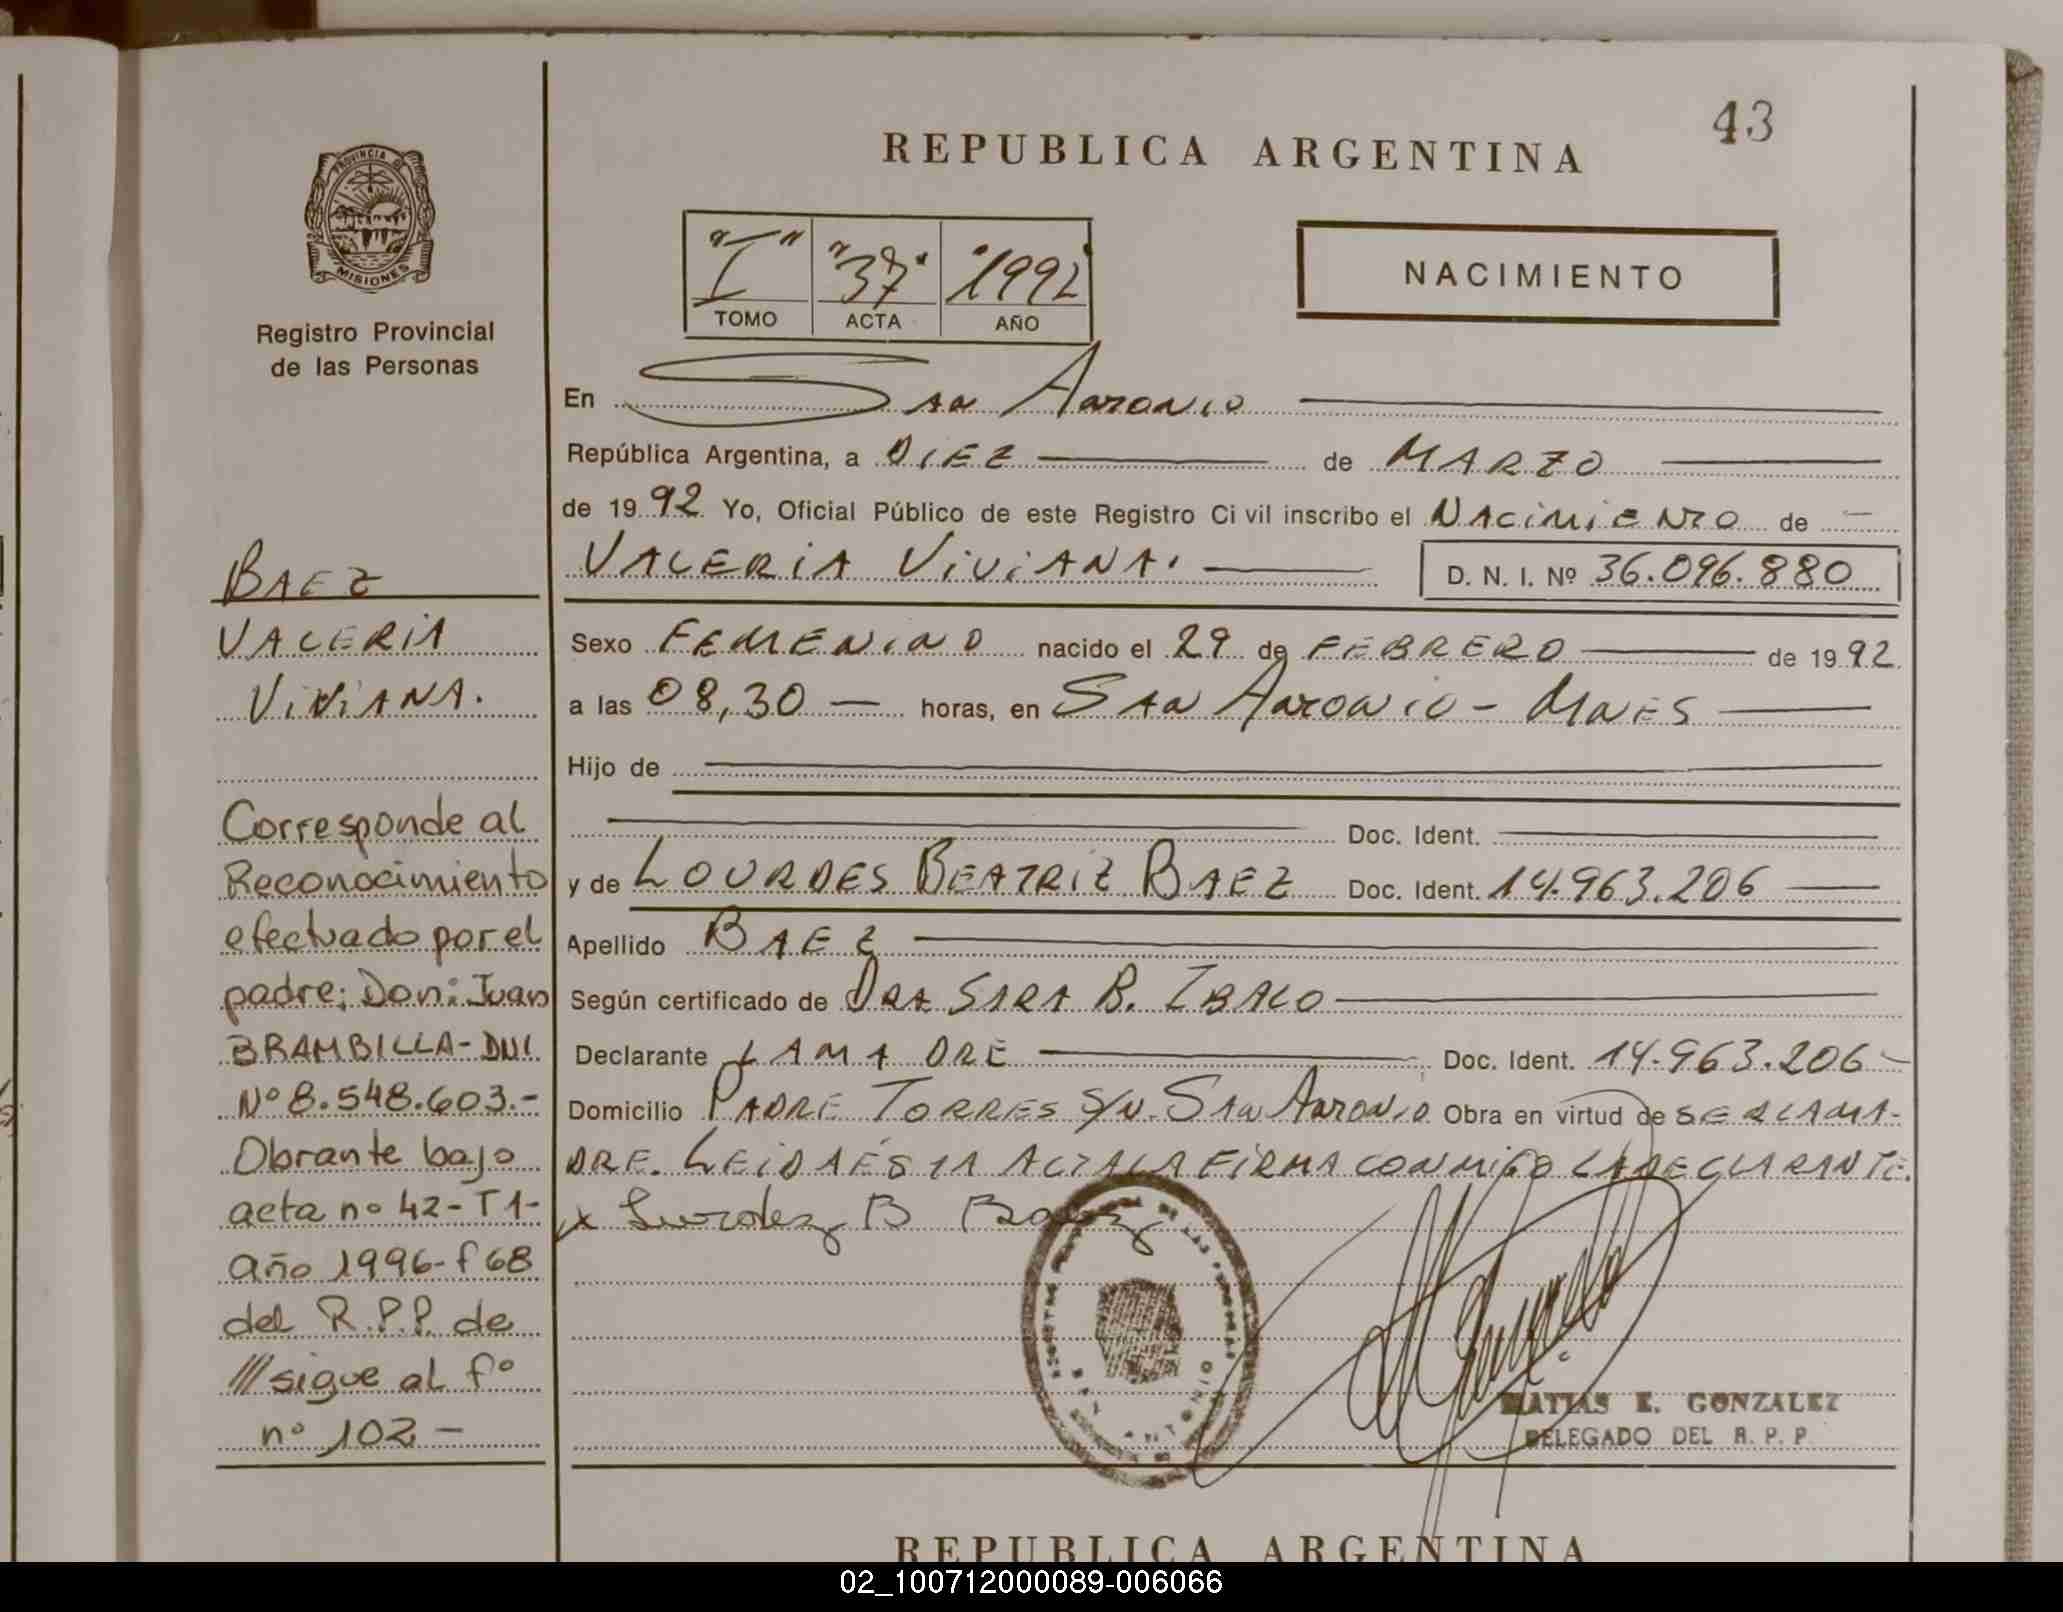 43
REPUBLICA ARGENTINA
PROVINCIA D
MISIONES
Registro Provincial
de las Personas
"I" "37" "1992"
TOMO ACTA AÑO
NACIMIENTO
En San Antonio
República Argentina, a DIEZ de MARZO
de 1992 Yo, Oficial Público de este Registro Civil inscribo el NACIMIENTO de
VALERIA VIVIANA. D. N. I. Nº 36.096.880
Sexo FEMENINO nacido el 29 de FEBRERO de 1992
a las 08,30 horas, en SAN ANTONIO - MNES
Hijo de
Doc. Ident.
y de LOURDES BEATRIZ BAEZ Doc. Ident. 14.963.206
Apellido BAEZ
Según certificado de DRA SARA B.
Declarante LA MADRE Doc. Ident. 14.963.206
Domicilio PADRE TORRES S/N. SAN ANTONIO Obra en virtud de SER LA MA-
DRE. LEIDA ESTA ACTA LA FIRMA CONMIGO LA DECLARANTE.
x Lurdez B Baez
SAN ANTONIO
MATIAS E. GONZALEZ
DELEGADO DEL R. P. P.
BAEZ
VALERIA
VIVIANA.
Corresponde al
Reconocimiento
efectuado por el
padre; Don: Juan
BRAMBILLA - DNI
Nº 8.548.603.-
Obrante bajo
acta nº 42-T1-
año 1996-f 68
del R.P.P. de
///sigue al fº
nº 102 -
REPUBLICA ARGENTINA
02_100712000089-006066